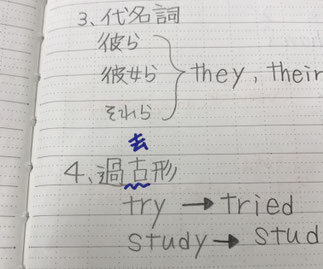 3、代名詞
彼ら
彼女ら } they, their
それら
去
4、過古形
try → tried
study → stud